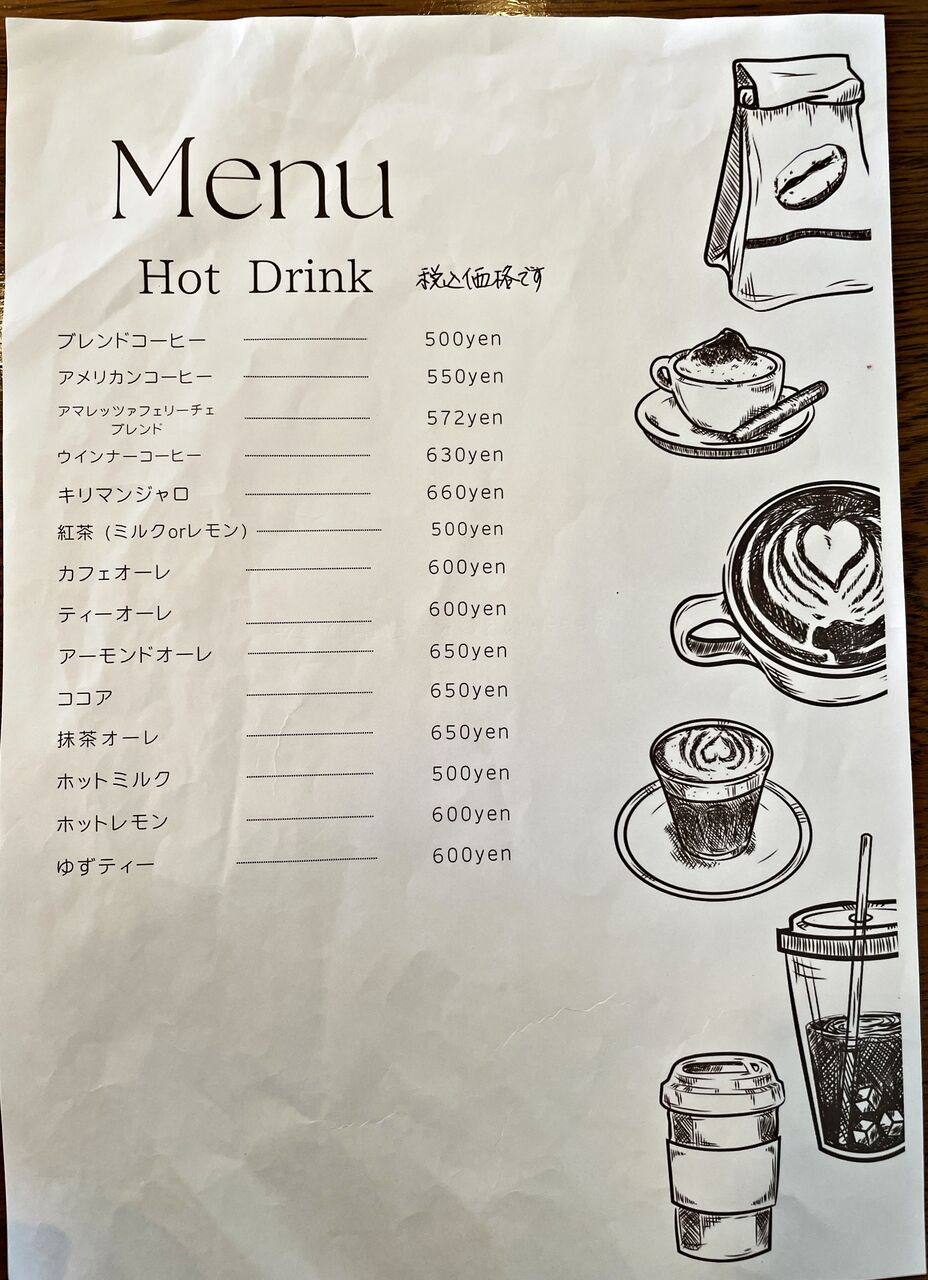 Menu
Hot Drink 税込価格です
ブレンドコーヒー 500yen
アメリカンコーヒー 550yen
アマレッツァフェリーチェ
ブレンド 572yen
ウインナーコーヒー 630yen
キリマンジャロ 660yen
紅茶 (ミルクorレモン) 500yen
カフェオーレ 600yen
ティーオーレ 600yen
アーモンドオーレ 650yen
ココア 650yen
抹茶オーレ 650yen
ホットミルク 500yen
ホットレモン 600yen
ゆずティー 600yen